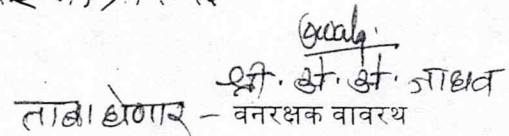 श्री. अे. अे. जाधव
ताबा घेणार - वनरक्षक वावरथ